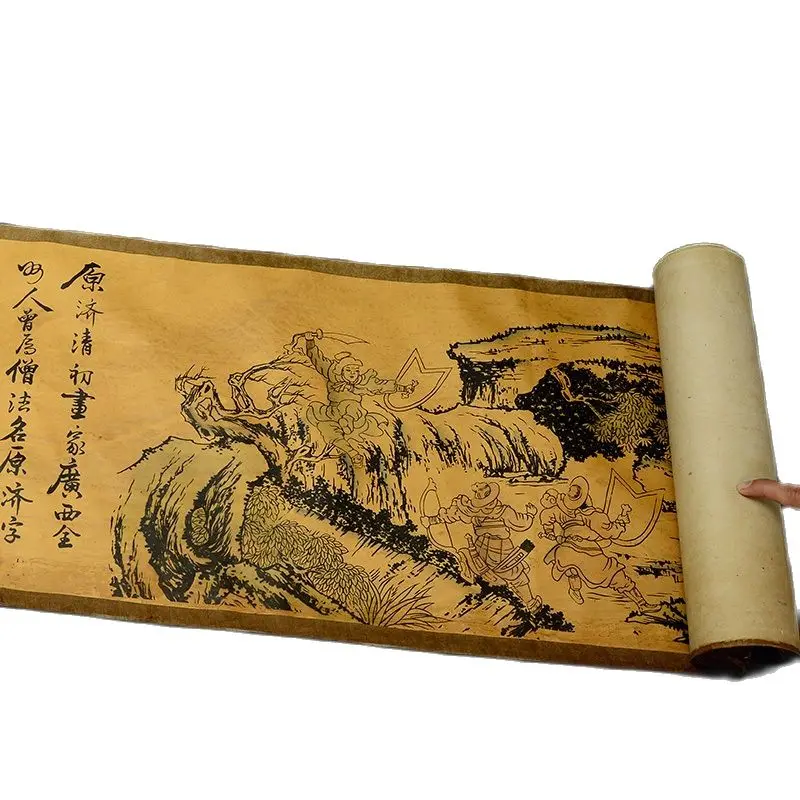 原济清初畫家廣西全
州人曾爲僧法名原济字